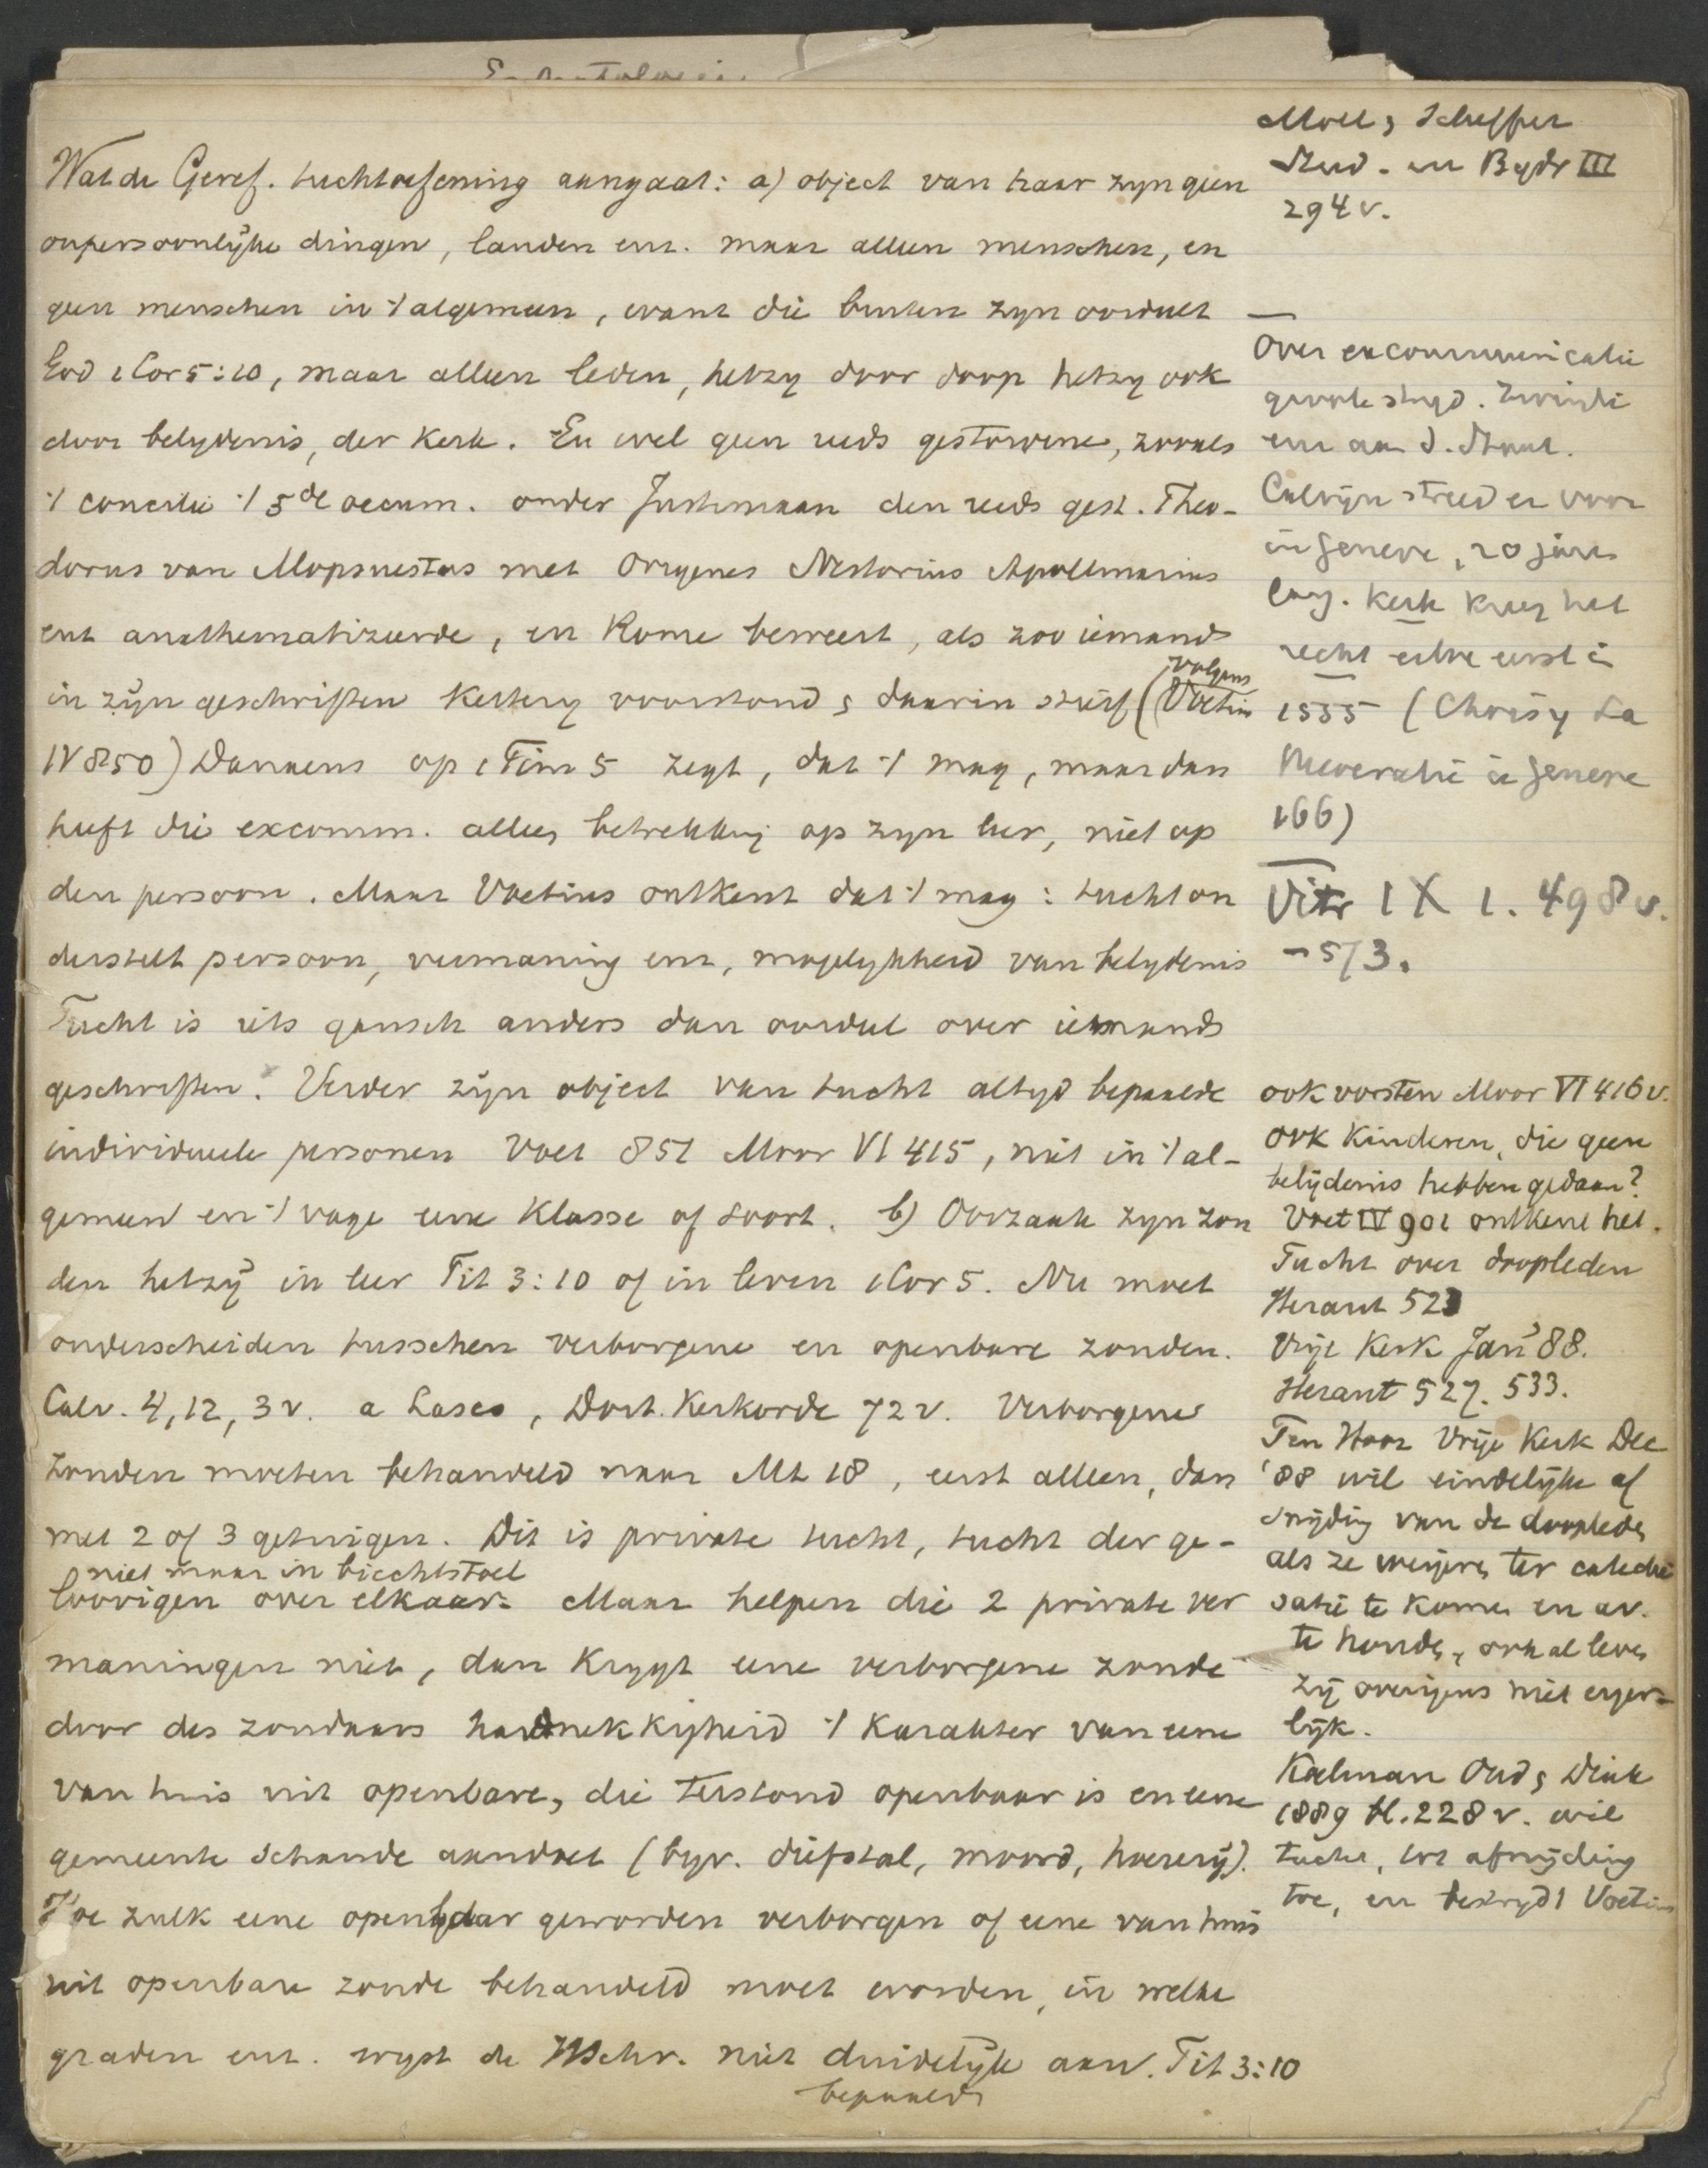 Wat de Geref. tuchtoefening aangaat: a) object van haar zyn geen
onpersoonlijke dingen, landen enz. maar alleen menschen, en
geen menschen in 't algemeen, want die buiten zyn oordeelt
God 1 Cor 5:10, maar alleen leden, hetzy door doop hetzy ook
door belydenis, der Kerk. En wel geen reeds gestorvene, zooals
't concilie 't 5de oecum. onder Justiniaan den reeds gest. Theo-
dorus van Mopsuestas met Origenes Nestorius Apollinarius
enz anathematizeerde, en Rome beweert, als zoo iemand
in zijn geschriften Kettery voorstond & daarin stierf (volgens Voetius
IV 850) Danaeus op 1 Tim 5 zegt, dat 't mag, maar dan
heeft die excomm. alleen betrekking op zyn leer, niet op
den persoon. Maar Voetius ontkent dat 't mag: tucht on
derstelt persoon, vermaning enz, mogelykheid van belydenis
Tucht is iets gansch anders dan oordeel over iemands
geschriften. Verder zijn object van tucht altyd bepaalde
individueele personen Voet 851 Moor VI 415, niet in 't al-
gemeen en 't vage eene Klasse of soort. b) Oorzaak zyn zon
den hetzij in leer Tit 3:10 of in leven 1 Cor 5. Nu moet
onderscheiden tusschen verborgene en openbare zonden.
Calv. 4,12,3 v. a Lasco, Dort. Kerkorde 72 v. Verborgene
zonden moeten behandeld naar Mt 18, eerst alleen, dan
met 2 of 3 getuigen. Dit is private tucht, tucht der ge-
niet maar in biechtstoel
loovigen over elkaar. Maar helpen die 2 private ver
maningen niet, dan Krygt eene verborgene zonde
door des zondaars hardnekkigheid 't Karakter van eene
van huis uit openbare, die terstond openbaar is en eene
gemeente schande aandoet (byv. diefstal, moord, hoererij).
Hoe zulk eene openbaar geworden verborgen of eene van huis
uit openbare zonde behandeld moet worden, in welke
graden enz. wyst de HSchr. niet duidelijk aan. Tit 3:10
bepaald
Moll & Scheffer
Stud. en Bydr III
294 v.
Over excommunicatie
groote stryd. Zwingli
enz aan d. Staat.
Calvijn streed er voor
in Geneve, 20 jaren
lang. Kerk kreeg het
recht eerst in
1555 (Choisy La
Theocratie à Geneve
166)
Vitr IX 1. 498 v.
- 573.
ook vorsten Moor VI 416 v.
ook Kinderen, die geen
belijdenis hebben gedaan?
Voet IV 901 ontkent het.
Tucht over doopleden
Heraut 523
Vrije Kerk Jan '88.
Heraut 527. 533.
Ten Hoor Vrije Kerk Dec
'88 wil eindelijke af
snijding van de doopleden
als ze weigeren ter cateche
satie te komen en av.
te houden, ook al leven
zij overigens niet erger-
lijk.
Koelman Oud &
1889 bl. 228 v. wil
tucht, tot afsnijding
toe, en bestrydt Voetius